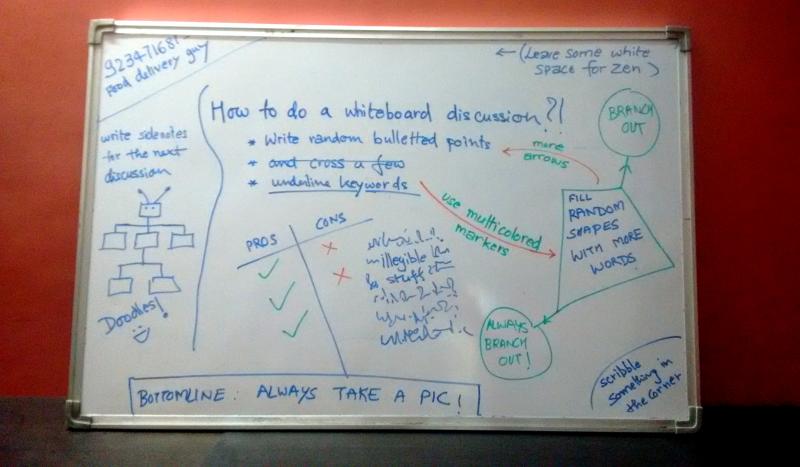 923471681-
Food delivery guy
← (Leave some white
space for Zen)
write sidenotes
for the next
discussion
Doodles!
How to do a whiteboard discussion?!
* Write random bulletted points
* and cross a few
* underline keywords
more
arrows
use multicolored
markers
BRANCH
OUT
FILL
RANDOM
SHAPES
WITH MORE
WORDS
ALWAYS
BRANCH
OUT!
PROS
CONS
illegible
stuff
scribble
something in
the corner
BOTTOMLINE: ALWAYS TAKE A PIC!